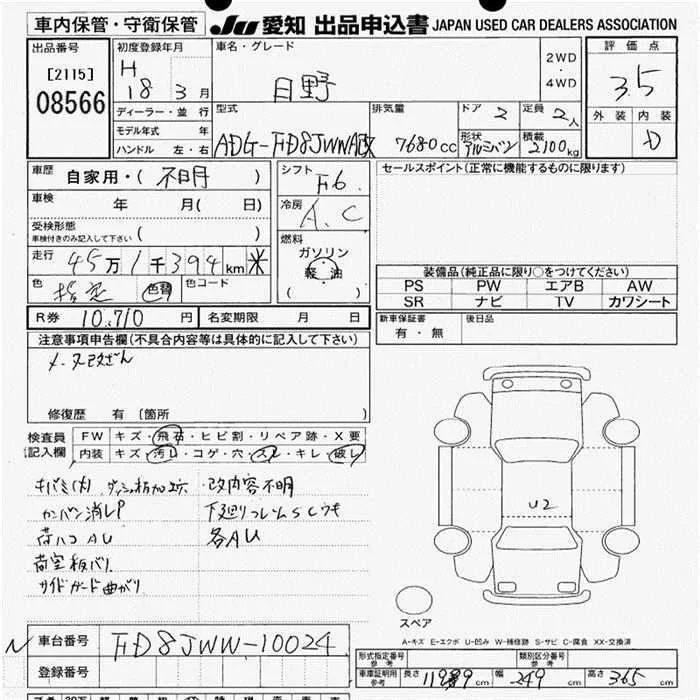 車内保管・守衛保管
JU 愛知 出品申込書 JAPAN USED CAR DEALERS ASSOCIATION
出品番号
[2115]
08566
初度登録年月
H
18 3 月
ディーラー・並 行
モデル年式 年
ハンドル 左・右
車名・グレード
日野
2WD
・
4WD
型式
ADG-FD8JWWA改
排気量
7680cc
ドア
2
定員
2人
形状
アルミバン
積載
2100kg
評 価 点
3.5
外 装 内 装
D
車歴
自家用・( 不明 )
車検
年 月( 日)
受検形態
車検付きのみ記入して下さい ( )
走行
45万1千394km
色
色替
色コード
シフト
F6
冷房
A.C
燃料
ガソリン
軽 油
( )
セールスポイント(正常に機能するものに限ります)
装備品(純正品に限り○をつけてください)
PS PW エアB AW
SR ナビ TV カワシート
新車保証書
有・無
後日品
R券 10,710 円
名変期限 月 日
注意事項申告欄(不具合内容等は具体的に記入して下さい)
メーター改ざん
修復歴 有 (箇所 )
検査員
記入欄
FW キズ・飛石・ヒビ割・リペア跡・X要
内装 キズ・汚レ・コゲ・穴・スレ・キレ・破レ
キバミ(内)
改内容不明
カンバン消しP
下廻りフレームSCウキ
荷ハコAU
各AU
荷室板バリ
サイドガード曲がり
U2
スペア
A-キズ E-エクボ U-凹み W-補修跡 S-サビ C-腐食 XX-交換済
車台番号
FD8JWW-10024
登録番号
形式指定番号
参 考
類別区分番号
参 考
車庫証明用
参考
長さ cm
幅 249 cm
高さ 365 cm